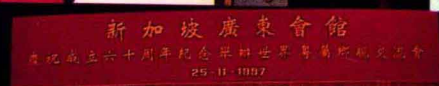 新加坡廣東會館
慶祝成立六十周年紀念舉辦世界粵屬鄉親交流會
25-11-1997